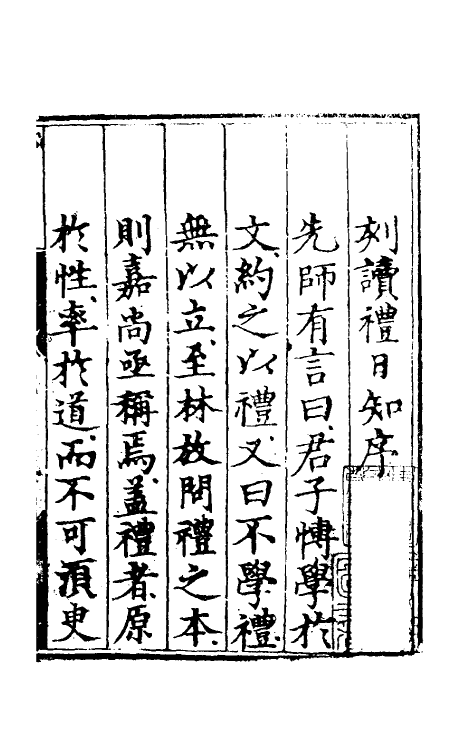 刻讀禮日知序
先師有言曰君子博學於
文約之以禮又曰不學禮
無以立至林放問禮之本
則嘉尚亟稱焉蓋禮者原
於性率於道而不可須臾